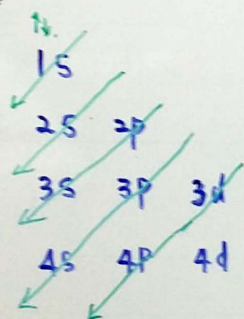 1s
2s 2p
3s 3p 3d
4s 4p 4d